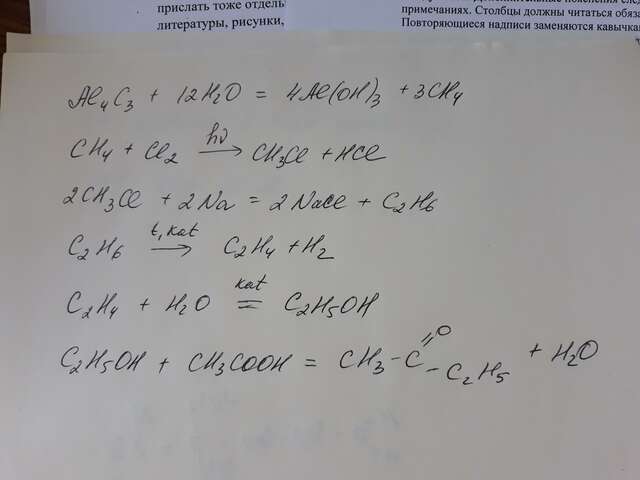 прислать тоже отдель
литературы, рисунки,
примечаниях. Столбцы должны читаться обяза
Повторяющиеся надписи заменяются кавычка
Al₄C₃ + 12H₂O = 4Al(OH)₃ + 3CH₄
CH₄ + Cl₂ hν → CH₃Cl + HCl
2CH₃Cl + 2Na = 2NaCl + C₂H₆
C₂H₆ t, kat → C₂H₄ + H₂
C₂H₄ + H₂O kat = C₂H₅OH
C₂H₅OH + CH₃COOH = CH₃-C=O-C₂H₅ + H₂O